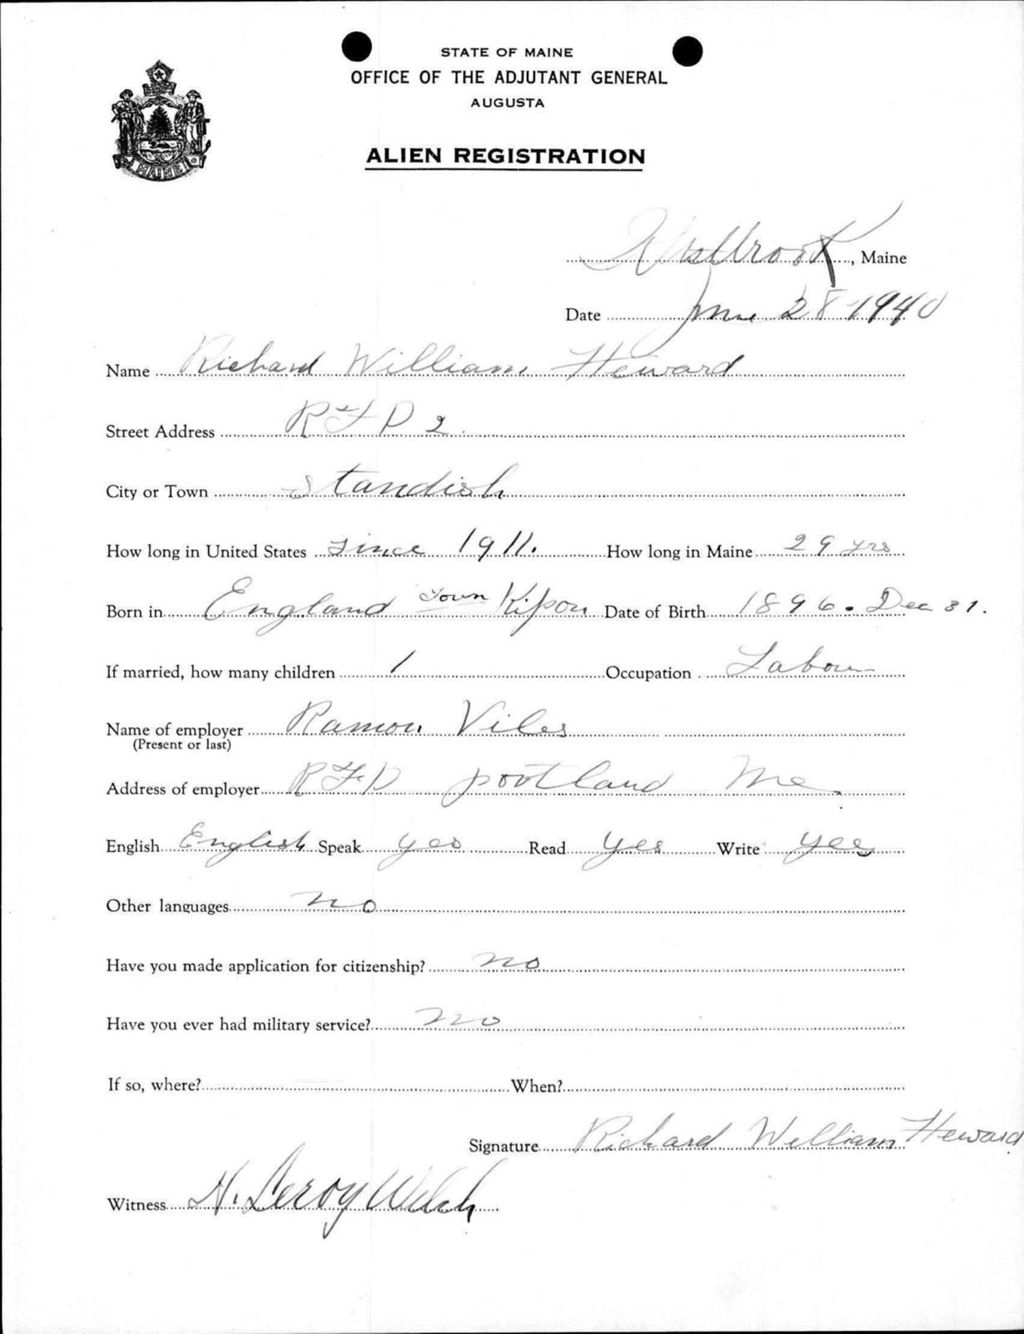 STATE OF MAINE
OFFICE OF THE ADJUTANT GENERAL
AUGUSTA
ALIEN REGISTRATION
MAINE
Westbrook, Maine
Date June 28 1940
Name Richard William Heward
Street Address RFD 2
City or Town Standish
How long in United States since 1911. How long in Maine 29 yrs
Born in England town Date of Birth 1896. Dec 31.
If married, how many children 1 Occupation Labour
Name of employer Ramon Viles
(Present or last)
Address of employer RFD portland Me
English English Speak yes Read yes Write yes
Other languages no
Have you made application for citizenship? no
Have you ever had military service? no
If so, where? When?
Signature Richard William Heward
Witness H. Leroy Welch